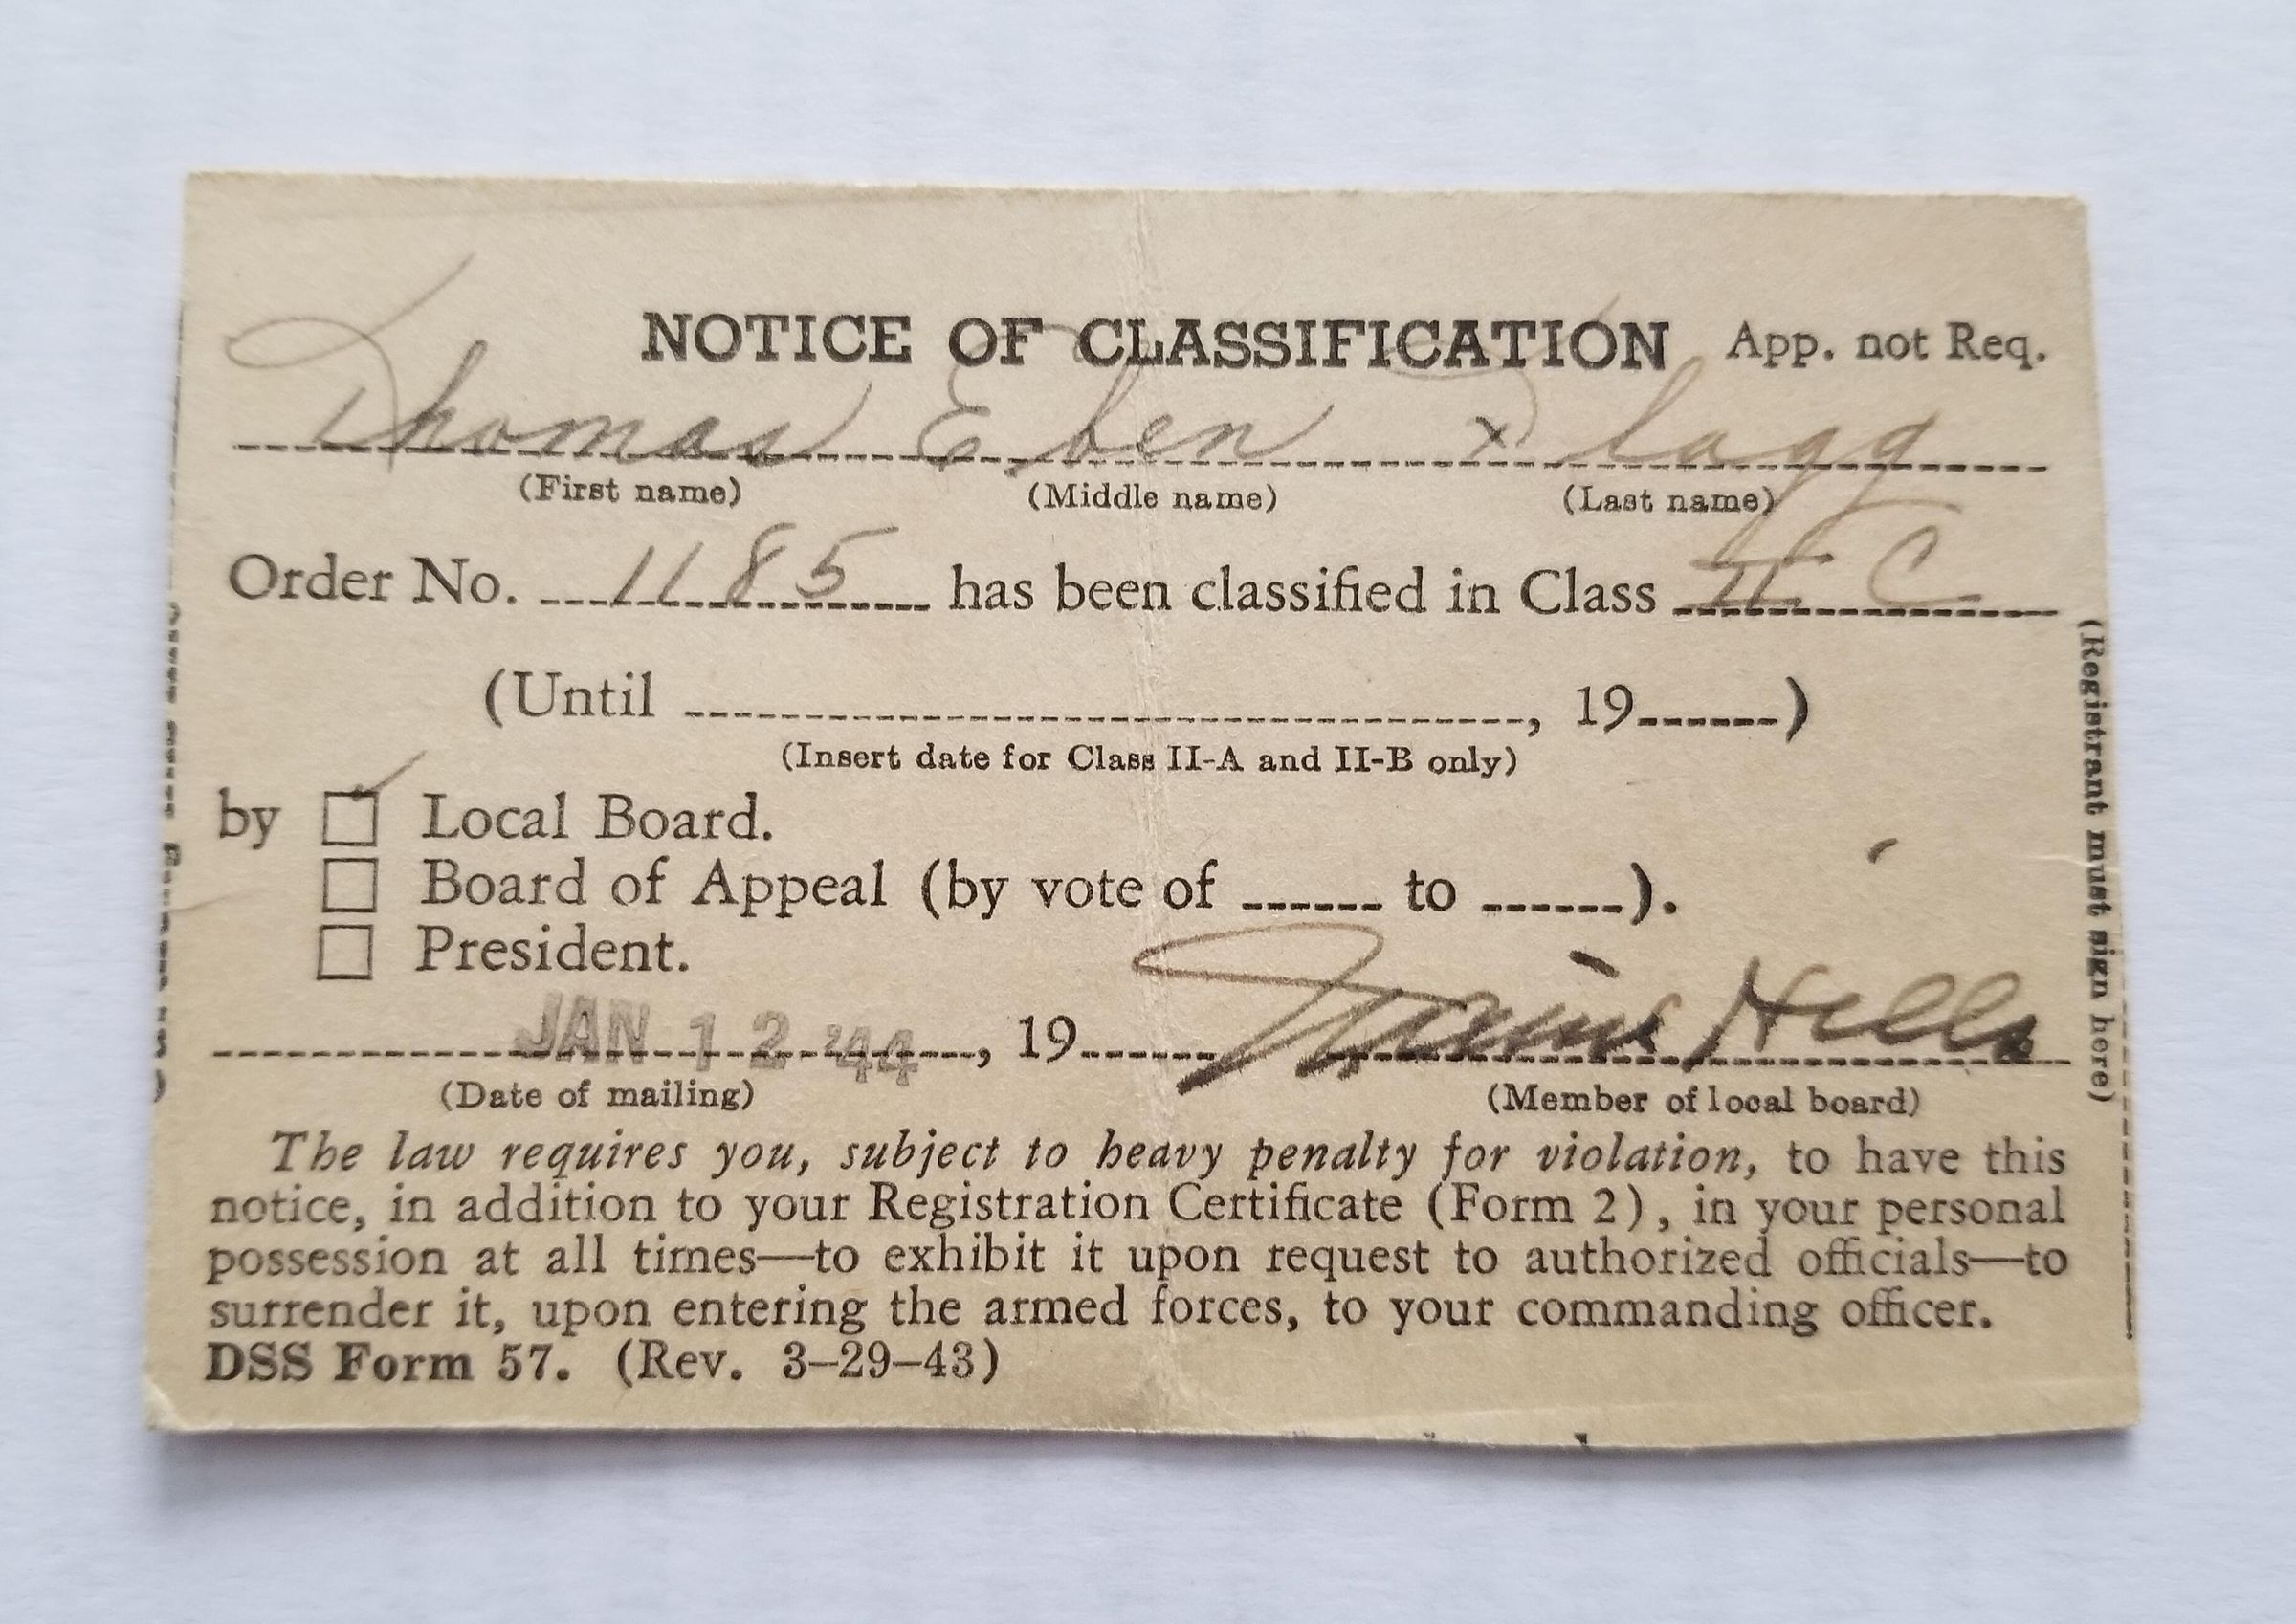 NOTICE OF CLASSIFICATION App. not Req.
Thomas Eben Flagg
(First name) (Middle name) (Last name)
Order No. 1185 has been classified in Class II C
(Until , 19 )
(Insert date for Class II-A and II-B only)
by ☑ Local Board.
☐ Board of Appeal (by vote of to ).
☐ President.
JAN 12 '44, 19 Hills
(Date of mailing) (Member of local board)
The law requires you, subject to heavy penalty for violation, to have this
notice, in addition to your Registration Certificate (Form 2), in your personal
possession at all times—to exhibit it upon request to authorized officials—to
surrender it, upon entering the armed forces, to your commanding officer.
DSS Form 57. (Rev. 3-29-43)
(Registrant must sign here)